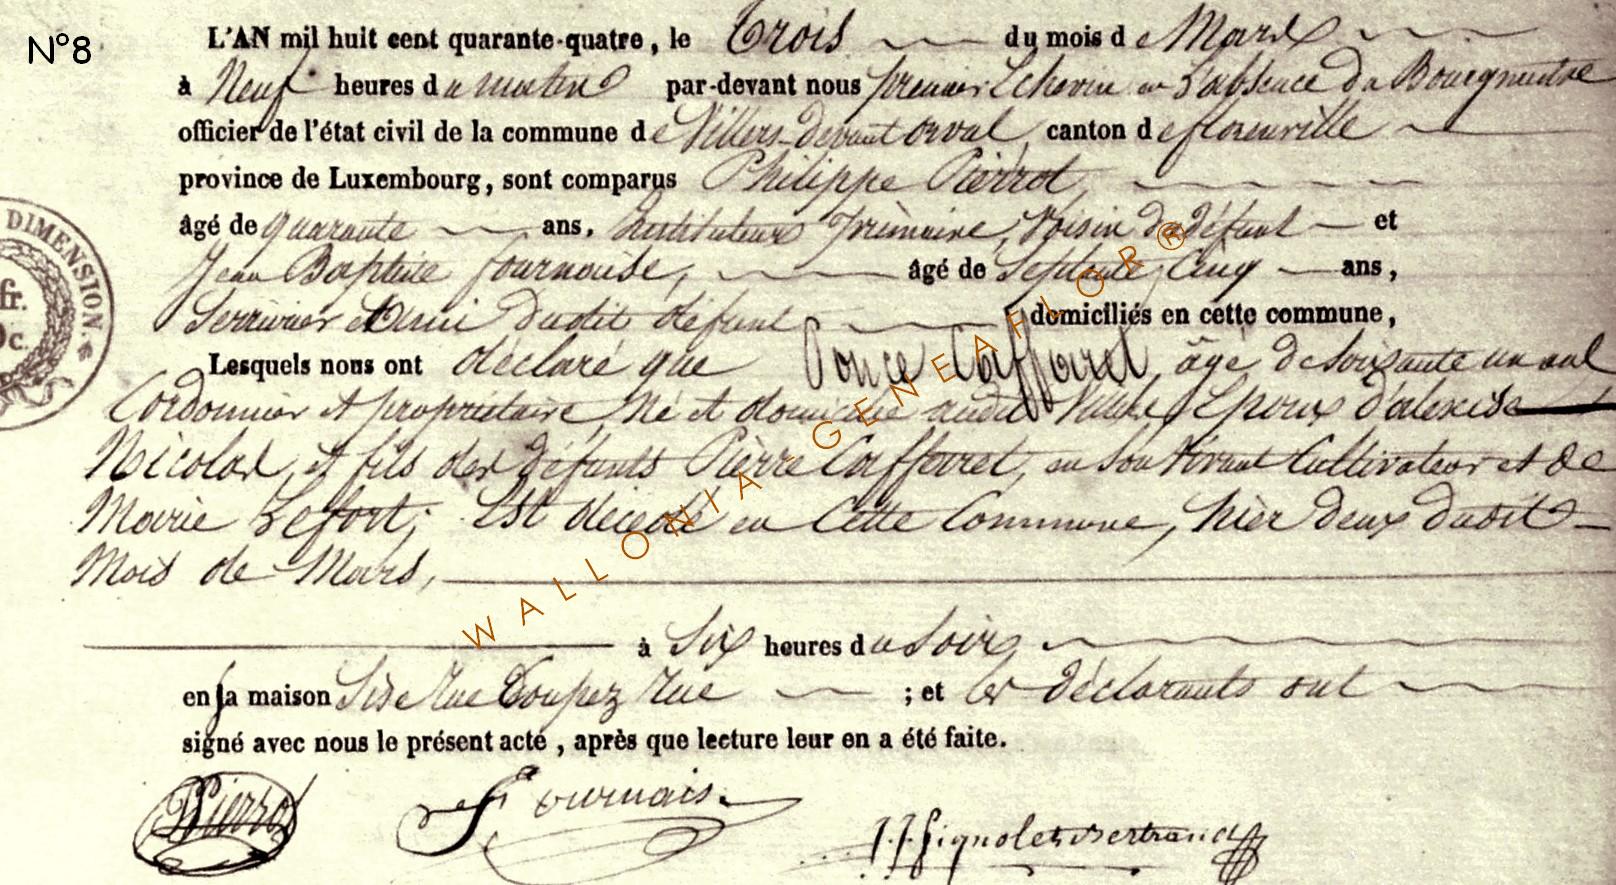 N°8
L'AN mil huit cent quarante-quatre, le Trois du mois de Mars
à Neuf heures du matin par-devant nous premier Echevin en l'absence du Bourgmestre
officier de l'état civil de la commune de Villers-devant orval, canton de florenville
province de Luxembourg, sont comparus Philippe Pierrot,
âgé de quarante ans, Instituteur primaire, Voisin du défunt et
Jean Baptiste fournaise, âgé de Septante Cinq ans,
Serrurier et Ami dudit défunt domiciliés en cette commune,
Lesquels nous ont déclaré que Ponce Caffouret, âgé de soixante un ans
Cordonnier et propriétaire, Né et domicilié audit Epoux d'alexise
Nicolas, et fils des défunts Pierre Caffouret, en son vivant Cultivateur et de
Marie Lefort; Est décédé en Cette Commune, hier deux dudit
Mois de Mars,
à Six heures du soir
en sa maison Sise Rue Coupez Rue ; et les déclarants ont
signé avec nous le présent acté, après que lecture leur en a été faite.
Pierrot Fournais. J.J. Gignolet Bertrand
DIMENSION.
fr.
c.
WALLONIA-GENEAFLOR®